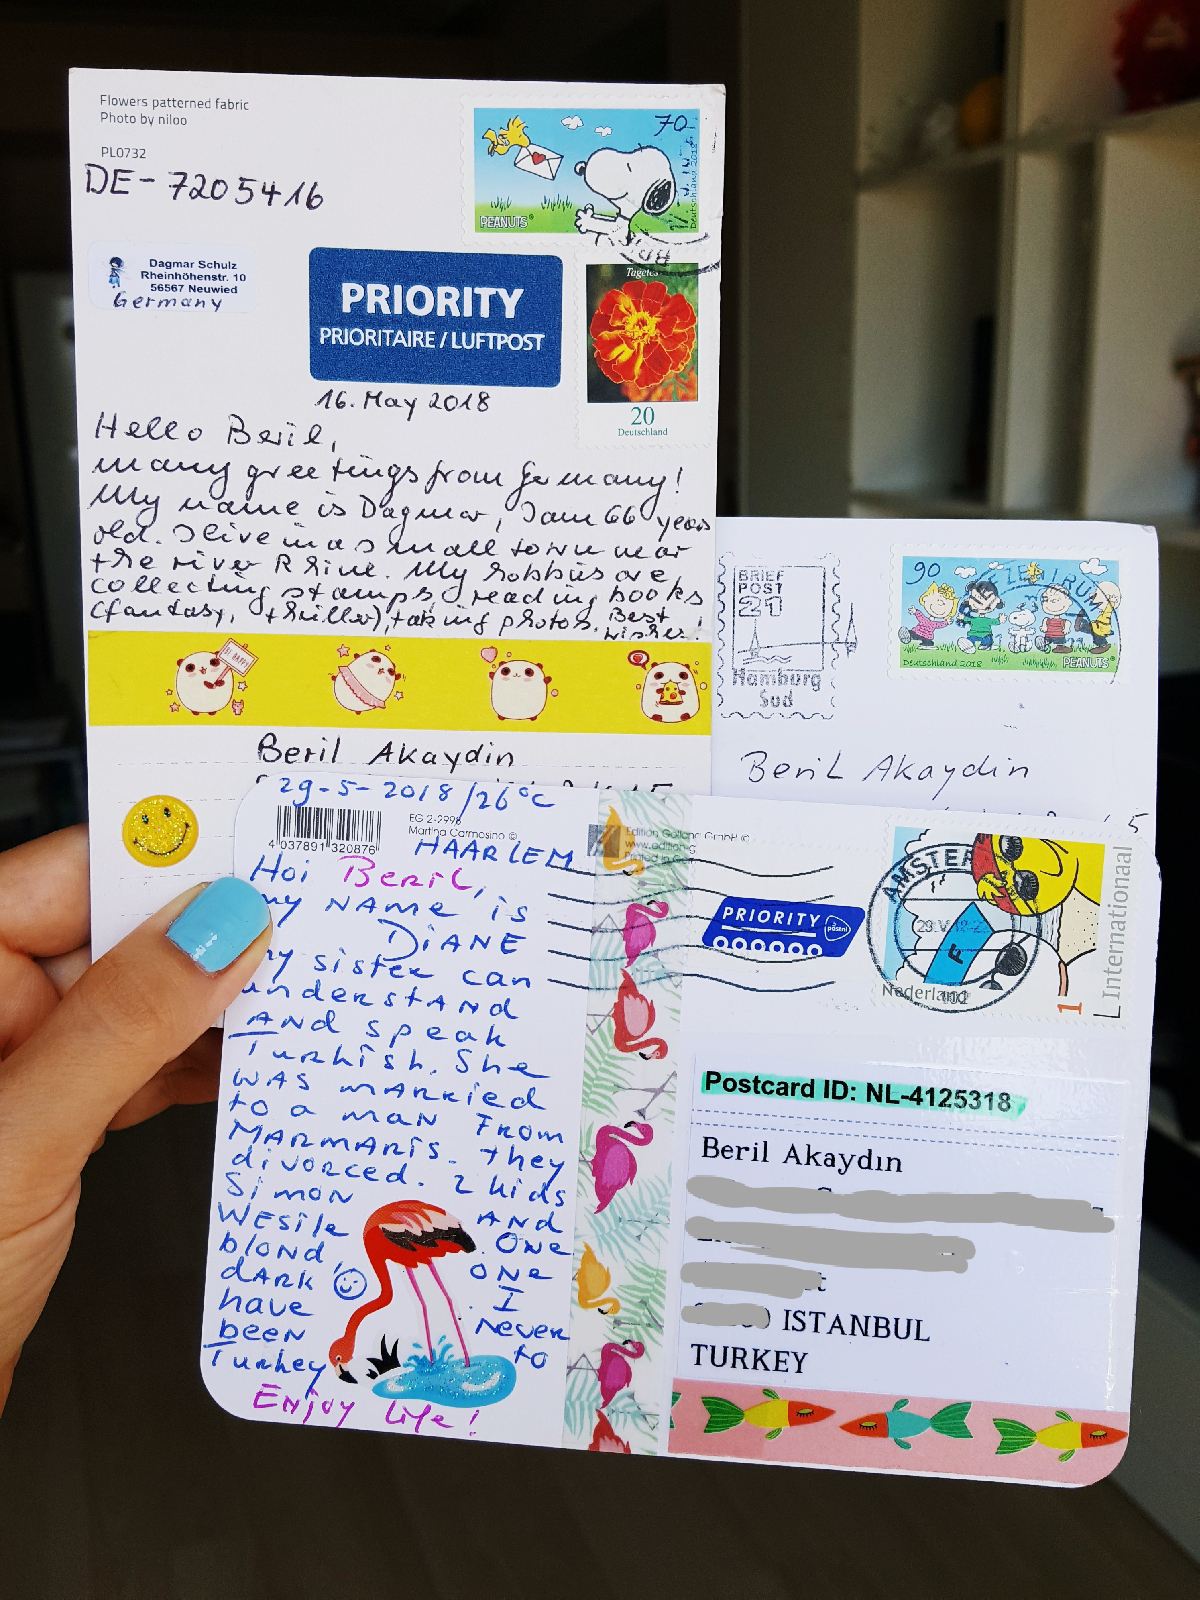 Flowers patterned fabric
Photo by niloo
PL0732
DE-7205416
70
Deutschland 2018
PEANUTS
Dagmar Schulz
Rheinhöhenstr. 10
56567 Neuwied
Germany
PRIORITY
PRIORITAIRE / LUFTPOST
Tagetes
20
Deutschland
16. May 2018
Hello Beril,
many greetings from Germany!
My name is Dagmar, I am 66 years
old. I live in a small town near
the river Rhine. My hobbies are
collecting stamps, reading books
(fantasy, thriller), taking photos. Best
wishes!
BE HAPPY
Beril Akaydin
BRIEF
POST
21
Hamburg
Süd
90
ZENTRUM
Deutschland 2018
PEANUTS
Beril Akaydin
5
29-5-2018/26°C
4 037891 320876
EG 2-2998
Martina Carmosino ©
HAARLEM
Edition Gollong GmbH ©
www.edition-g
Printed in Ger
Hoi Beril,
my NAME is
DIANE
my sister can
understAND
AND speak
Turkish. She
WAS mARRied
to a maN From
MARMARIS. they
divorced. 2 kids
Simon AND
WEsile. One
blond, ONe
dARK I
have Never
been to
Turkey
Enjoy Life!
PRIORITY
postnl
AMSTER
29.V.18-2
F
Nederland
1 Internationaal
Postcard ID: NL-4125318
Beril Akaydın
ISTANBUL
TURKEY